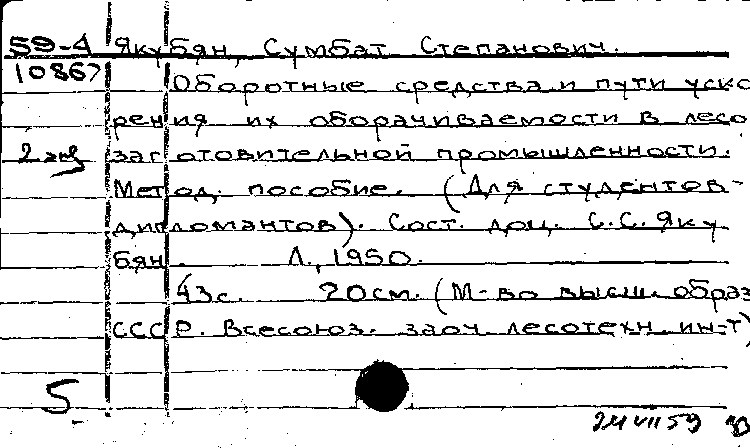 59-4 Якубян, Сумбат Степанович.
10867 Оборотные средства и пути уско
рения их оборачиваемости в лесо
2 экз заготовительной промышленности.
Метод. пособие. (Для студентов-
дипломантов). Сост. доц. С.С. Яку
бян. Л., 1950.
43с. 20см. (М-во высш. образ
СССР. Всесоюз. заоч. лесотехн. ин-т)
5
24 VII 59